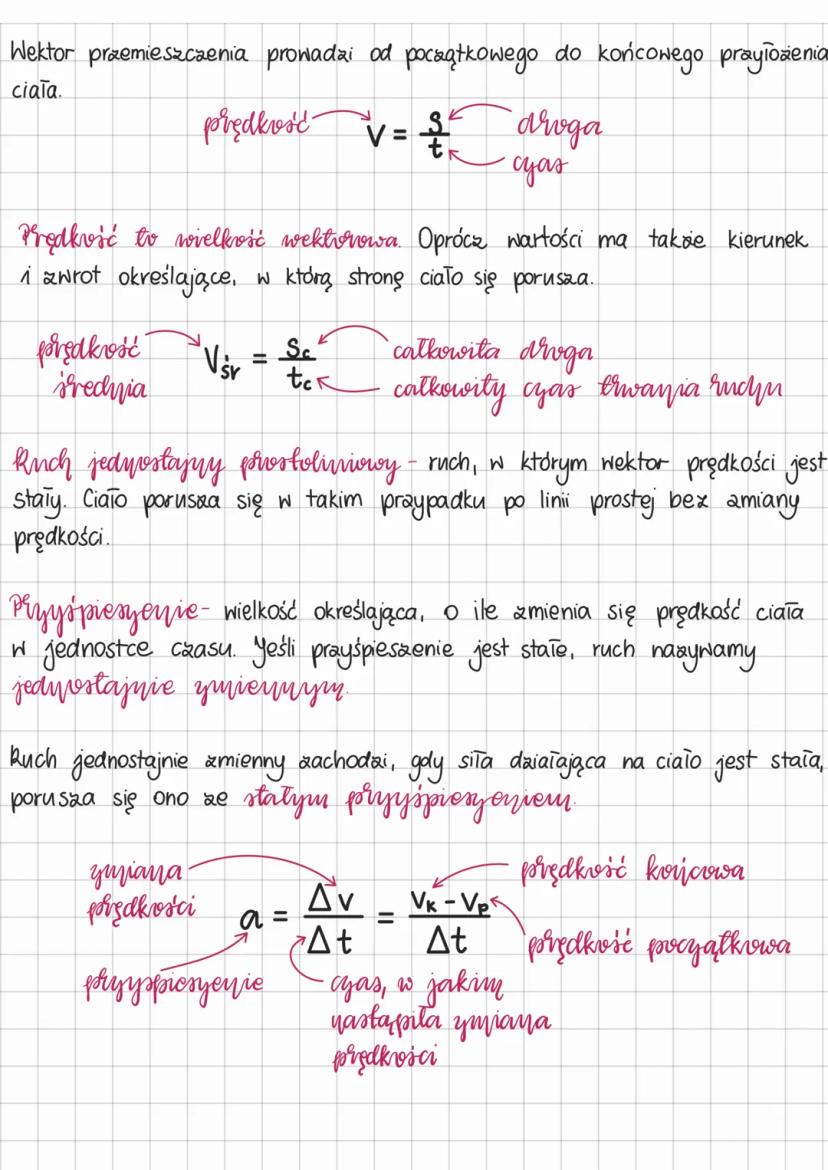 Wektor przemieszczenia prowadzi od początkowego do końcowego przyłożenia
ciała.
prędkość V = s/t droga
czas
Prędkość to wielkość wektorowa. Oprócz wartości ma także kierunek
i zwrot określające, w którą stronę ciało się porusza.
prędkość Vśr = Sc/tc całkowita droga
średnia całkowity czas trwania ruchu
Ruch jednostajny prostoliniowy - ruch, w którym wektor prędkości jest
stały. Ciało porusza się w takim przypadku po linii prostej bez zmiany
prędkości.
Przyśpieszenie - wielkość określająca, o ile zmienia się prędkość ciała
w jednostce czasu. Jeśli przyśpieszenie jest stałe, ruch nazywamy
jednostajnie zmiennym.
Ruch jednostajnie zmienny zachodzi, gdy siła działająca na ciało jest stała,
porusza się ono ze stałym przyśpieszeniem.
zmiana prędkość końcowa
prędkości a = Δv/Δt = Vk - Vp/Δt
prędkość początkowa
przyspieszenie czas, w jakim
nastąpiła zmiana
prędkości